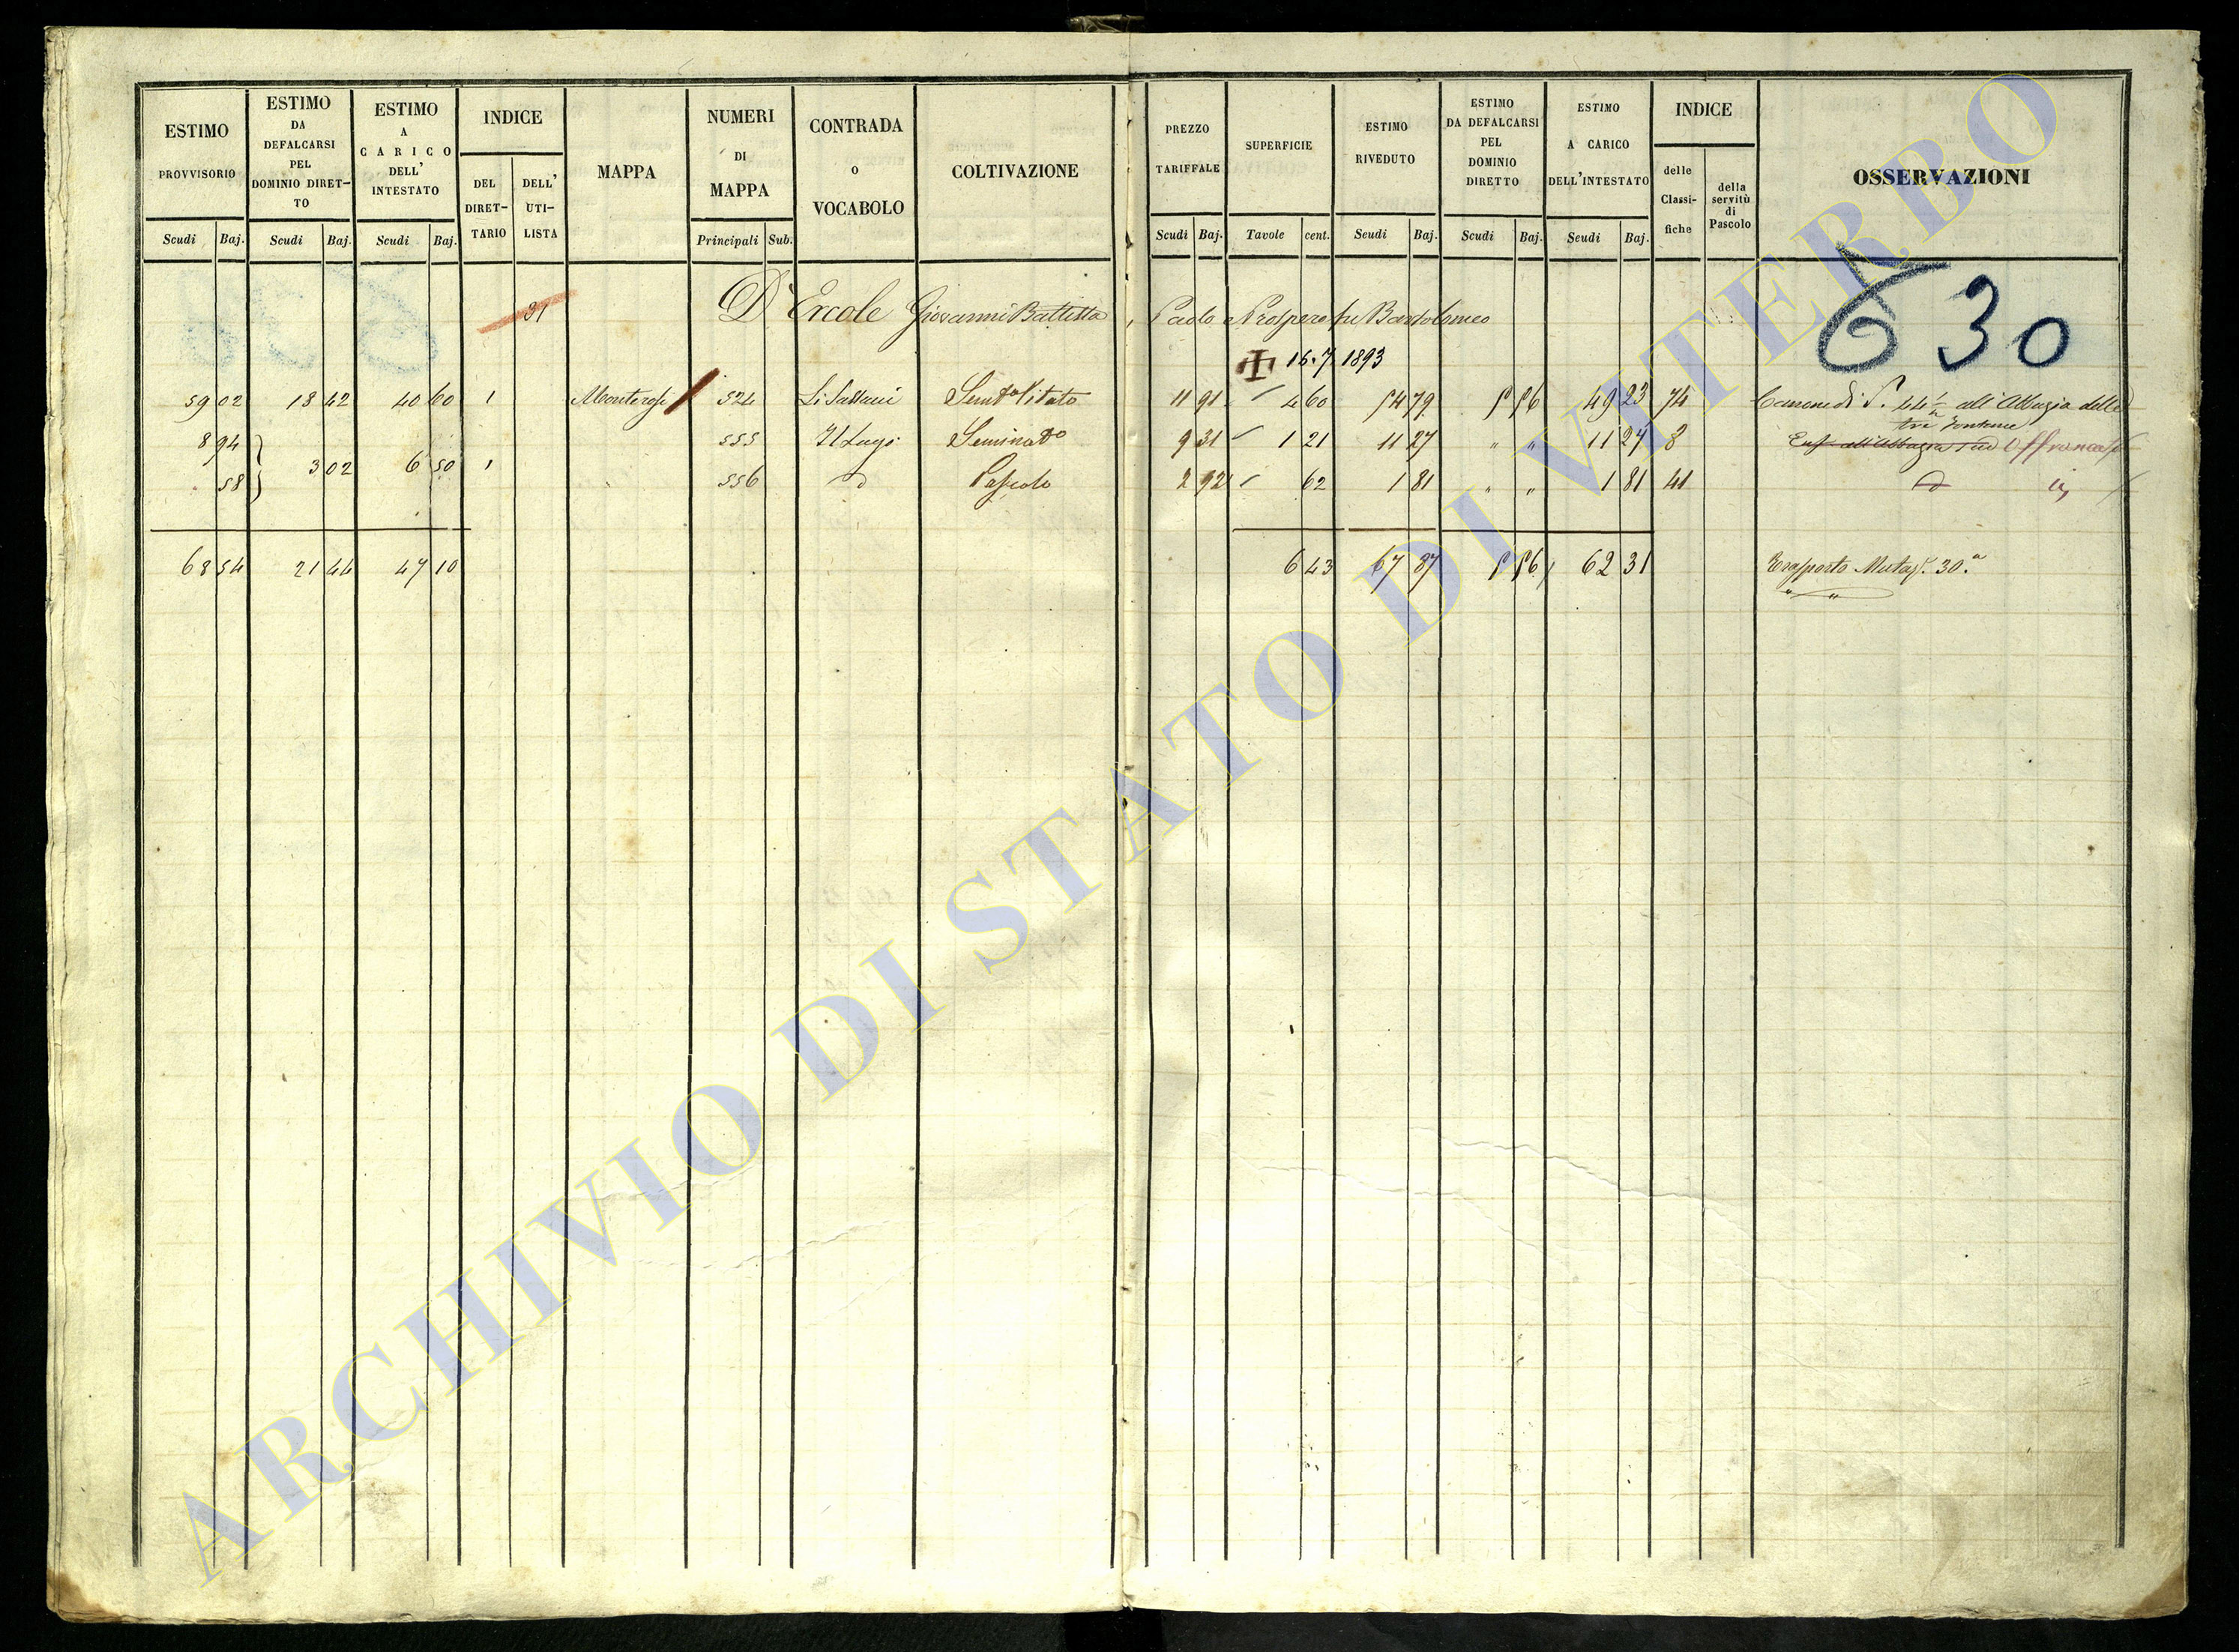 ESTIMO PROVVISORIO
ESTIMO DA DEFALCARSI PEL DOMINIO DIRET-TO
ESTIMO A CARICO DELL' INTESTATO
INDICE
DEL DIRET-TARIO
DELL' UTI-LISTA
MAPPA
NUMERI DI MAPPA
CONTRADA O VOCABOLO
COLTIVAZIONE
PREZZO TARIFFALE
SUPERFICIE
ESTIMO RIVEDUTO
ESTIMO DA DEFALCARSI PEL DOMINIO DIRETTO
ESTIMO A CARICO DELL'INTESTATO
INDICE
delle Classi-fiche
della servitù di Pascolo
OSSERVAZIONI
Scudi Baj. Scudi Baj. Scudi Baj. Principali Sub. Scudi Baj. Tavole cent. Scudi Baj. Scudi Baj. Scudi Baj.
630
31 D'Ercole Giovanni Battista, Paolo e Prospero fu Bartolomeo
16.7.1893
59 02 18 42 40 60 1 Monterosi 524 Semto Vitato 11 91 4 60 54 79 5 56 49 23 74 Canone di all'Abbazia delle
tre fontane
8 94 555 Seminato 9 31 1 21 11 27 " " 11 27 8 all'Abbazia Affrancato
3 02 6 50 1
58 556 d Pascolo 2 92 62 1 81 " " 1 81 41 d
68 54 21 44 47 10 6 43 67 87 5 56 62 31 Trasporto Mutaz. 30.a
ARCHIVIO DI STATO DI VITERBO